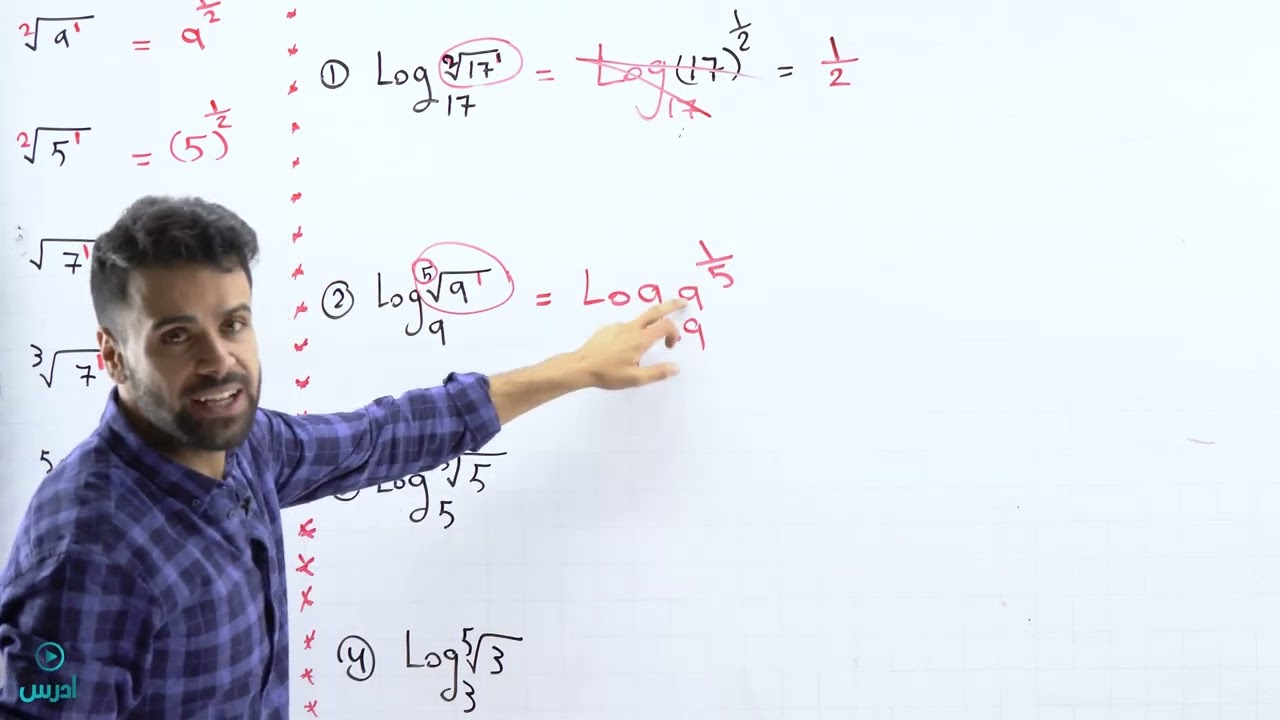 ²√9¹ = 9^(1/2)
²√5¹ = (5)^(1/2)
√7¹
³√7¹
5
① Log₁₇ ²√17¹ = Log₁₇ (17)^(1/2) = 1/2
② Log₉ ⁵√9¹ = Log₉ 9^(1/5)
Log₅ ³√5
④ Log₃ ⁵√3
ادرس